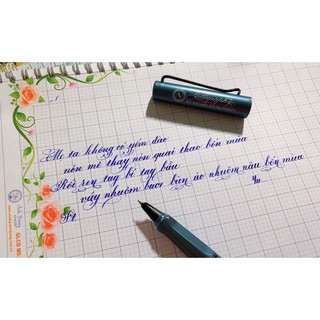 Mẹ ta không có yếm đào
nón mê thay nón quai thao bốn mùa
Rối ren tay bí tay bầu
váy nhuộm bùn áo nhuộm nâu bốn mùa